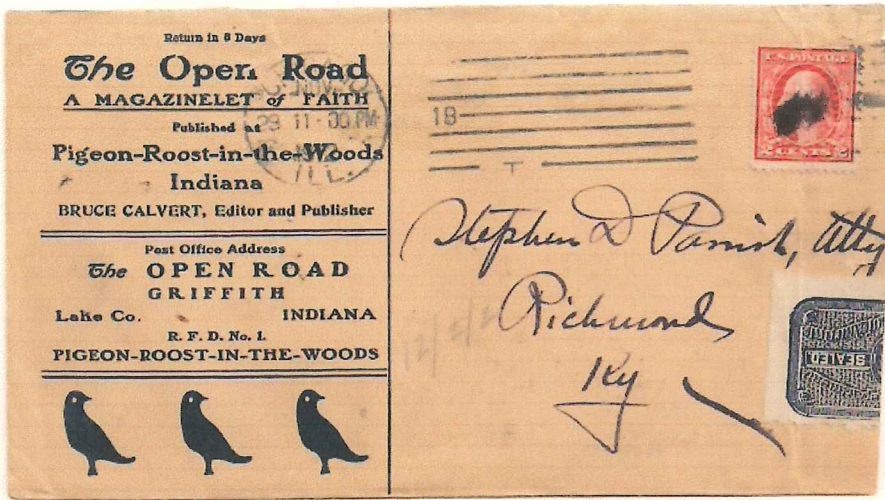 Return in 5 Days
The Open Road
A MAGAZINELET of FAITH
Published at
Pigeon-Roost-in-the-Woods
Indiana
BRUCE CALVERT, Editor and Publisher
Post Office Address
The OPEN ROAD
GRIFFITH
Lake Co. INDIANA
R. F. D. No. 1.
PIGEON-ROOST-IN-THE-WOODS
29 11-30 PM
ILL.
18
T
U.S. POSTAGE
2 CENTS 2
Stephen D Parrish, Atty
Richmond
Ky
SEALED